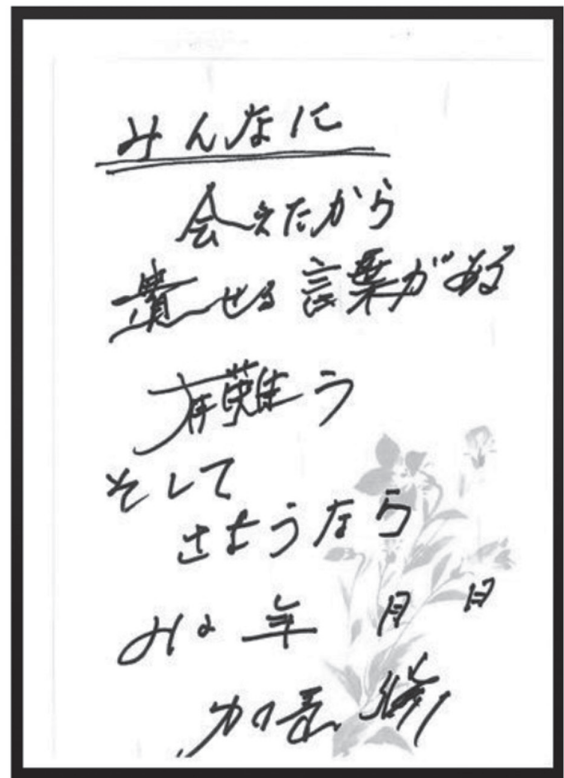 みんなに
会えたから
貴せる言葉がある
有難う
そして
さようなら
年 月 日